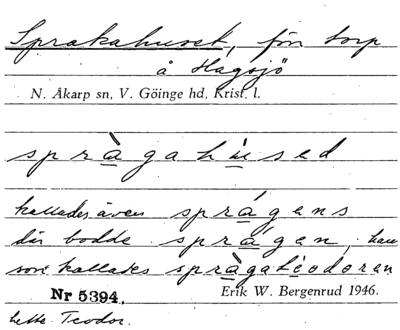 Sprakahuset, förr torp
å Hagsjö
N. Åkarp sn, V. Göinge hd, Krist. l.
språ̀gahúsed
kallades även sprǻgens
där bodde sprǻgen, han
som kallades språ̀gateodoren
Nr 5394. Erik W. Bergenrud 1946.
hette Teodor.